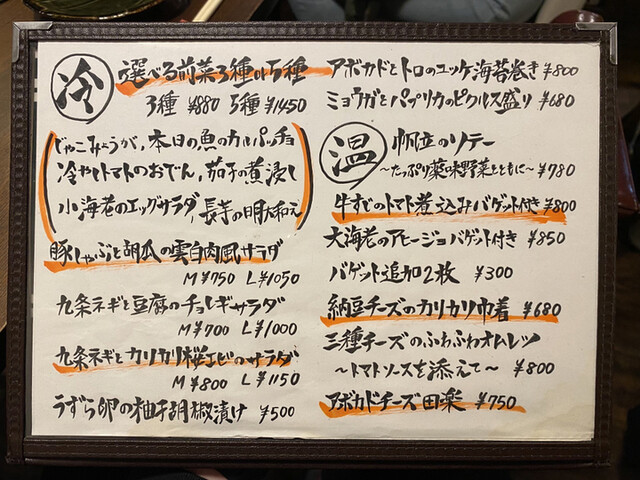 冷
選べる前菜3種or5種
3種 ¥880 5種 ¥1450
じゃこみょうが、本日の魚のカルパッチョ
冷やしトマトのおでん、茄子の煮浸し
小海老のエッグサラダ、長芋の明太和え
豚しゃぶと胡瓜の雲白肉風サラダ
M¥750 L¥1050
九条ネギと豆腐のチョレギサラダ
M¥700 L¥1000
九条ネギとカリカリ桜エビのサラダ
M¥800 L¥1150
うずら卵の柚子胡椒漬け ¥500
アボカドとトロのユッケ海苔巻き ¥800
ミョウガとパプリカのピクルス盛り ¥680
温
帆立のソテー
〜たっぷり薬味野菜とともに〜 ¥780
牛すじのトマト煮込みバゲット付き ¥800
大海老のアヒージョバゲット付き ¥850
バゲット追加2枚 ¥300
納豆チーズのカリカリ巾着 ¥680
三種チーズのふわふわオムレツ
〜トマトソースを添えて〜 ¥800
アボカドチーズ田楽 ¥750